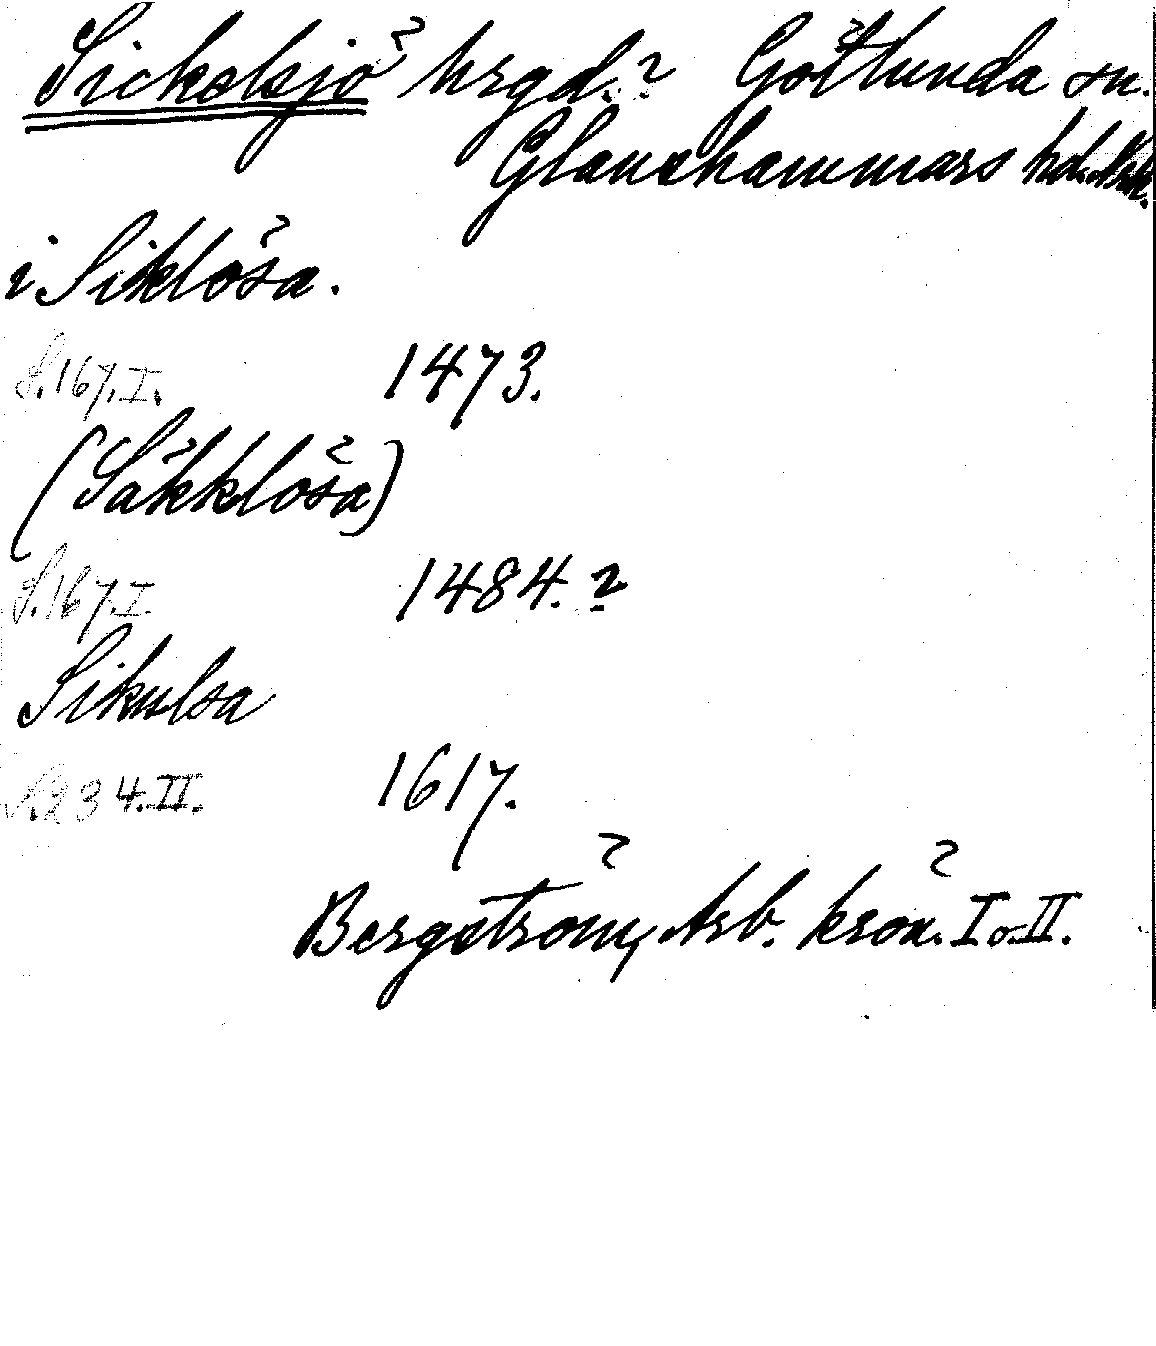 Sickelsjö hrgd.? Götlunda sn.
Glanshammars hd. Nrk.
i Siklösa.
S. 167. I. 1473.
(Säkklösa)
S. 167. I 1484. ?
Sikulsa
S. 234. II. 1617.
Bergström, Arb. krön. I o. II.